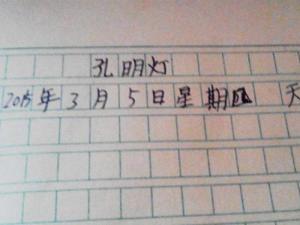 孔明灯
2015年3月5日星期四 天